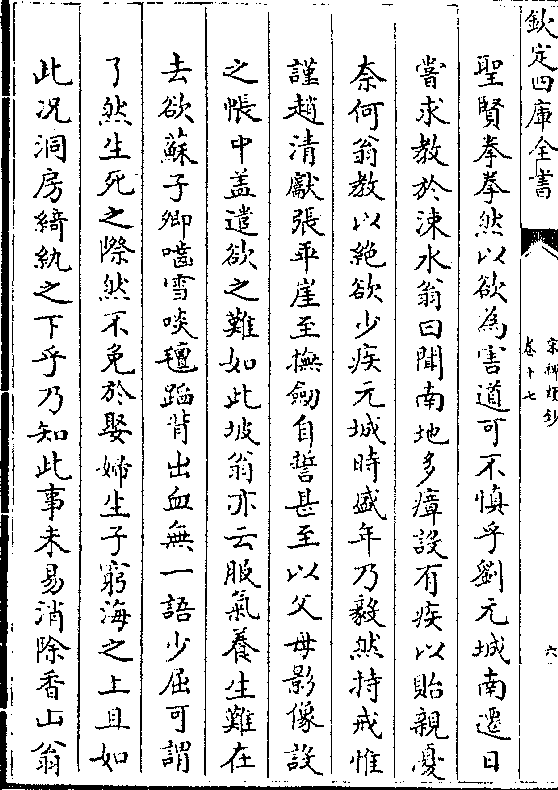 欽定四庫全書
宋稗類鈔
卷十七
六
聖賢拳拳然以欲為害道可不慎乎劉元城南遷日
嘗求教於涑水翁曰聞南地多瘴設有疾以貽親憂
奈何翁教以絶欲少疾元城時盛年乃毅然持戒惟
謹趙清獻張乖崖至撫劒自誓甚至以父母影像設
之帳中盖遣欲之難如此坡翁亦云服氣養生難在
去欲蘇子卿嚙雪啖氊蹈背出血無一語少屈可謂
了然生死之際然不免於娶婦生子窮海之上且如
此况洞房綺紈之下乎乃知此事未易消除香山翁